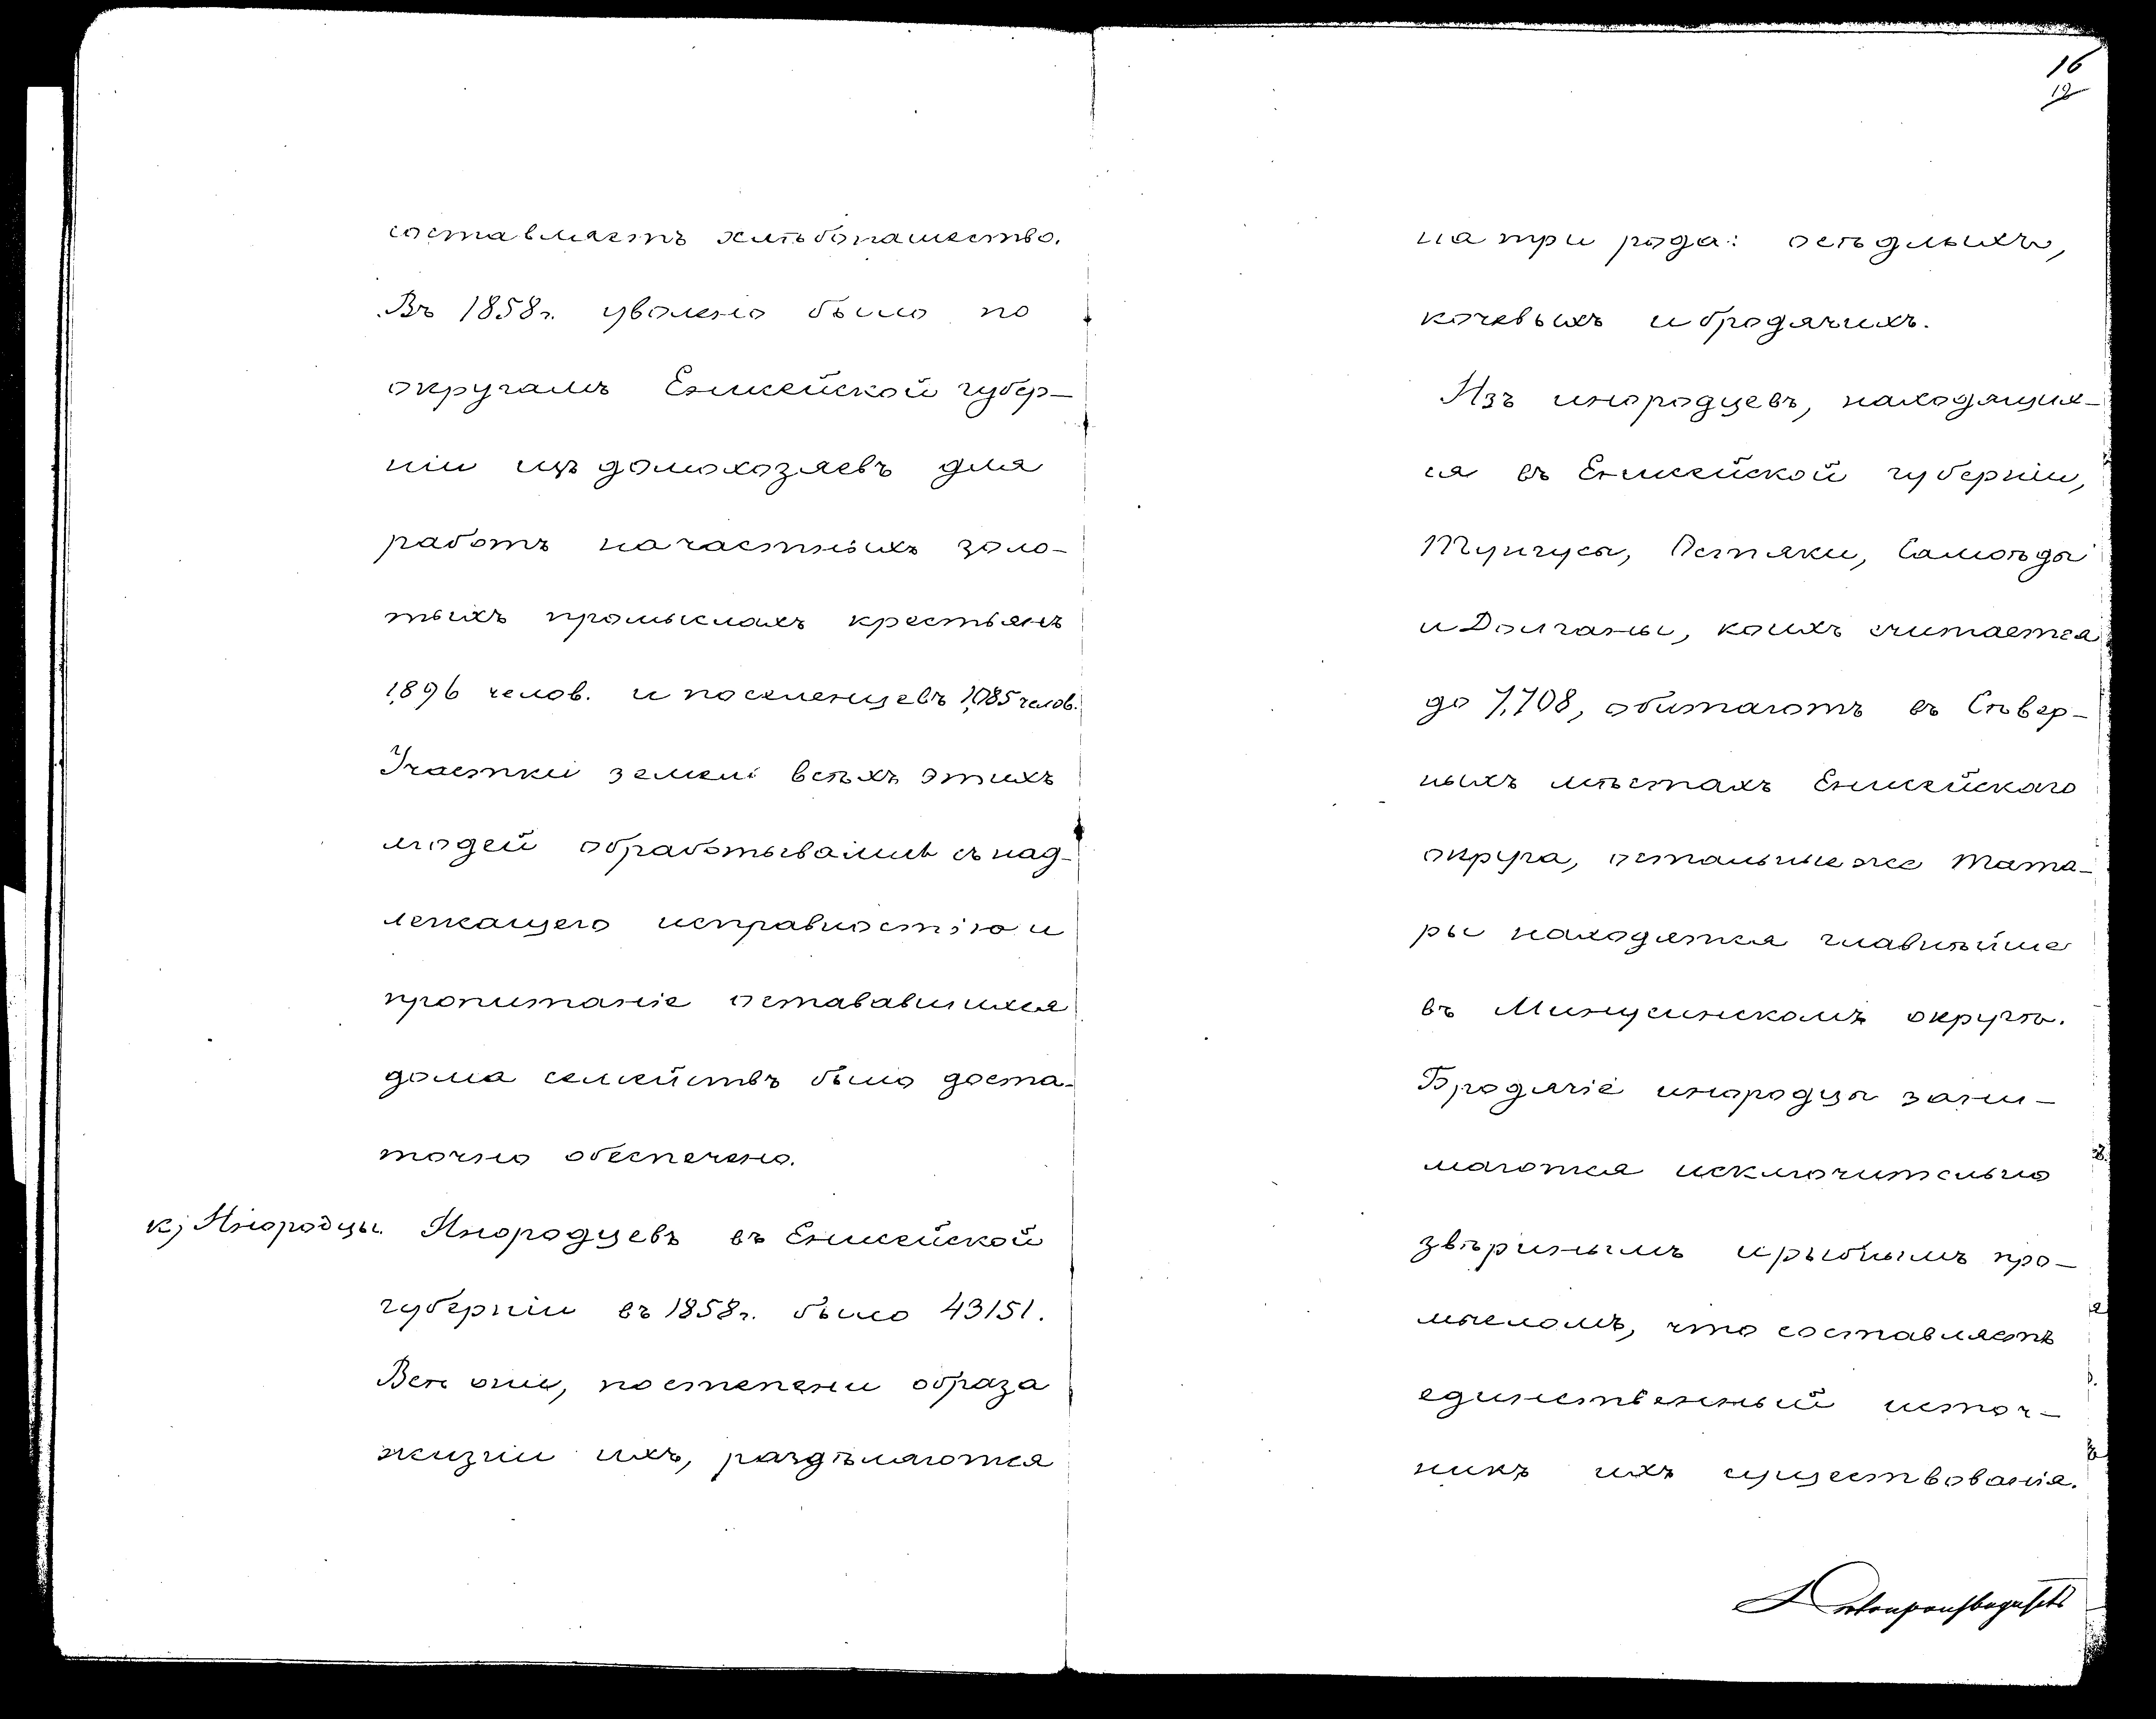 составляетъ хлѣбопашество.
Въ 1858г. уволено было по
округамъ Енисейской губер-
ніи изъ домохозяевъ для
работъ на частныхъ золо-
тыхъ промыслахъ крестьянъ
1,896 челов. и поселенцевъ 1,085 челов.
Участки земли всѣхъ этихъ
людей обрабатывались съ над-
лежащею исправностію и
пропитаніе остававшихся
дома семействъ было доста-
точно обеспечено.
к) Инородцы. Инородцевъ въ Енисейской
губерніи въ 1858г. было 43151.
Всѣ они, по степени образа
жизни ихъ, раздѣляются
16
12
на три рода: осѣдлыхъ,
кочевыхъ и бродячихъ.
Изъ инородцевъ, находящих-
ся въ Енисейской губерніи,
Тунгусы, Остяки, Самоѣды
и Долганы, коихъ считается
до 7,708, обитаютъ въ Сѣвер-
ныхъ мѣстахъ Енисейскаго
округа, остальные же Тата-
ры находятся главнѣйше
въ Минусинскомъ округѣ.
Бродячіе инородцы зани-
маются исключительно
звѣринымъ и рыбнымъ про-
мысломъ, что составляетъ
единственный источ-
никъ ихъ существованія.